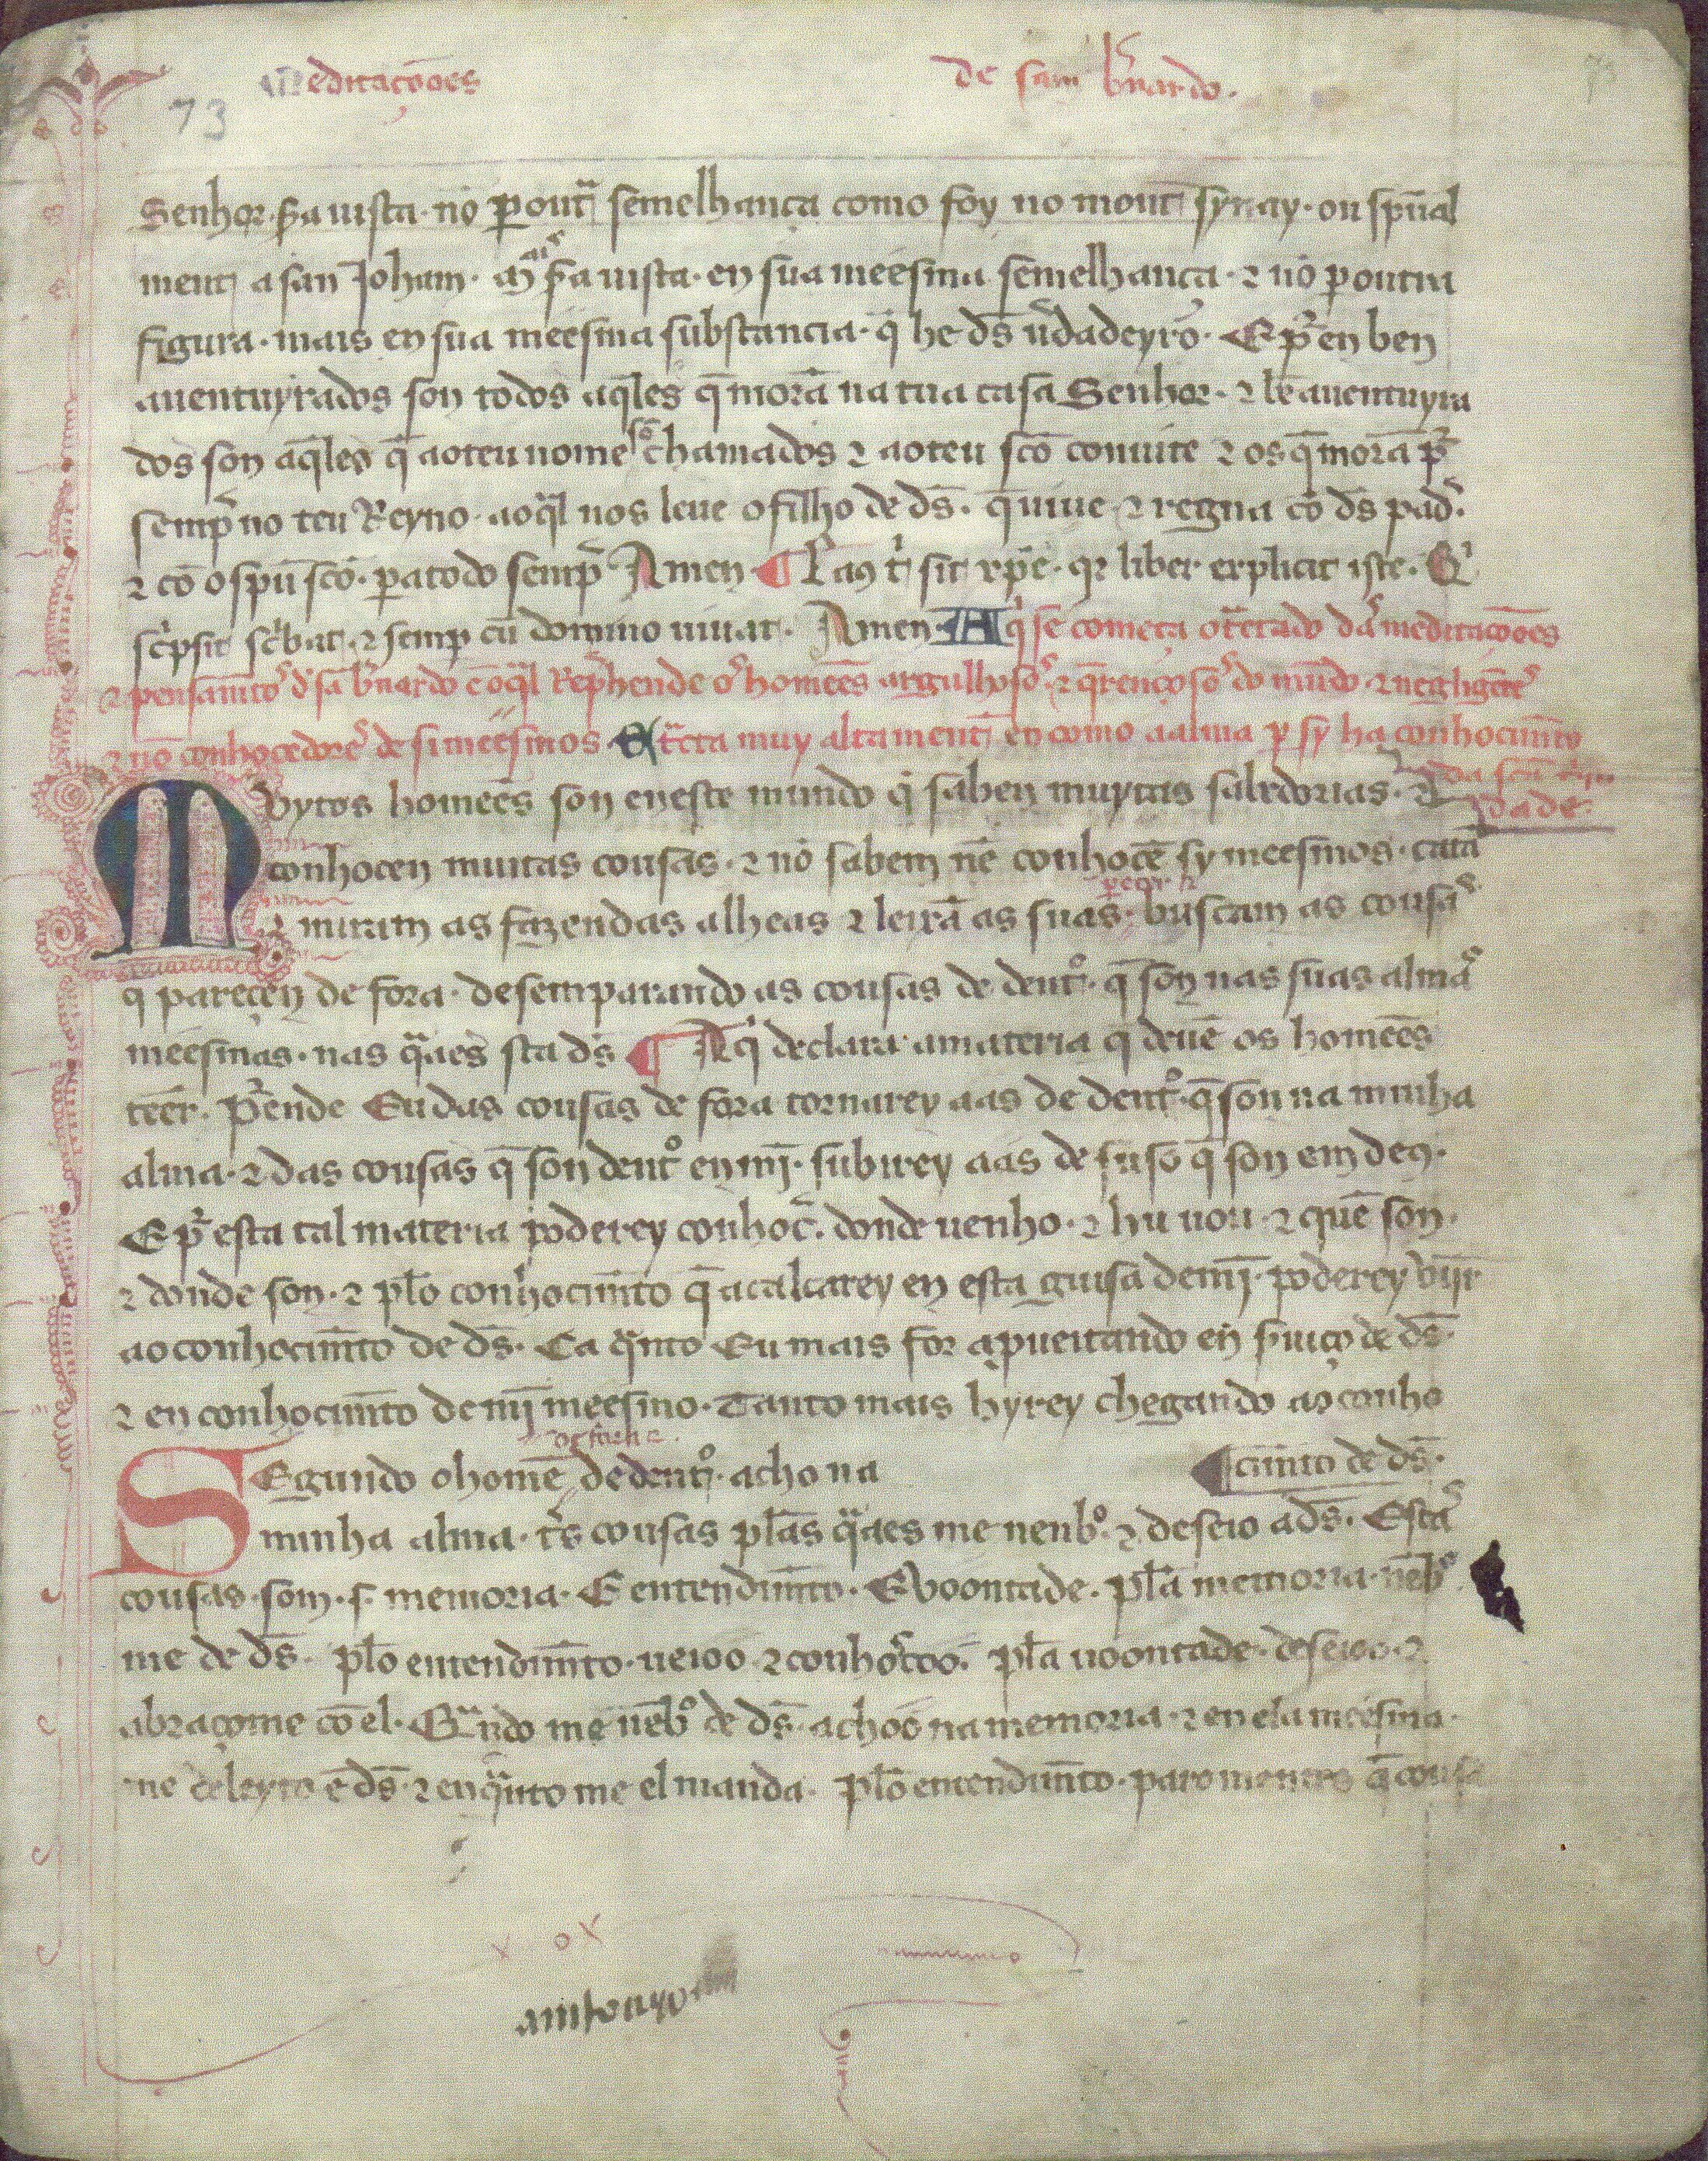 Meditaçoões de sam bnardo.
73
Senhor. p̃a uista. nõ p out̃ semelhança como foy no mont̃ synay. ou spũal
ment̃ a san Joham. mas p̃a uista. en sua meesma semelhança. ⁊ nõ p outra
figura. mais en sua meesma substancia. q̃ he ds̃ udadeyro. E p̃ en ben
auentuyrados son todos aq̃les q̃ morã na tua casa Senhor. ⁊ bẽ auentuyra
dos son aq̃les q̃ ao teu nome sõ chamados ⁊ ao teu sc̃o conuite ⁊ os q̃ morã p̃
semp̃ no teu Reyno. ao q̃l nos leue o filho de ds̃. q̃ uiue ⁊ regna cõ ds̃ pad̃.
⁊ cõ o spũ sc̃o. pa todo semp̃ Amen ¶ sit xp̃e. qr liber explicit iste. Qi
sc̃psit sc̃bat. ⁊ semp cũ domino uiuat. Amen. Aqi se começa o t̃ctado das meditaçoões
⁊ pensamt̃os d sã bnardo ẽ o q̃l Rep̃hende os homẽes argulhosos ⁊ do mũdo. ⁊ negligẽtes
⁊ nõ conhocedores de si meesmos. Et t̃cta muy altament̃ en como a alma p sy ha conhocimt̃o
da sc̃a
dade.
Muytos homẽes son en este mundo q̃ saben muytas sabedorias. ⁊
conhocen muitas cousas. ⁊ nõ sabem nẽ conhocẽ sy meesmos. catã
⁊ miram as fazendas alheas ⁊ leixã as suas. buscam as cousas
q pareçen de fora. desemparando as cousas de dent̃o. q̃ son nas suas almas
meesmas. nas q̃aes sta ds̃ ¶ Aqi declara a materia q deuẽ os homẽes
teer. P̃ende Eu das cousas de fora tornarey aas de dent̃o. q̃ son na minha
alma. ⁊ das cousas q̃ son dent̃o en mj̃. subirey aas de suso q̃ son em ds̃.
E p̃ esta tal materia poderey conhoc̃. donde uenho. ⁊ hu uou. ⁊ quẽ son.
⁊ donde son. ⁊ pl̃o conhocimt̃o q̃ acalçarey en esta guisa de mj̃. poderey vijr
ao conhocimt̃o de ds̃. Ca q̃nto Eu mais for ap̃ueitando en s̃uiço de ds̃.
⁊ en conhocimt̃o de mj̃ meesmo. Tanto mais hyrey chegando ao conho
¶ cimt̃o de ds̃.
SEgundo o homẽ de dent̃o. acho na
minha alma. t̃s cousas pl̃as q̃aes me nenbo. ⁊ deseio a ds̃. Estas
cousas. som. s. memoria. E entendimt̃o. E voontade. pl̃a memoria. nẽbro
me de ds̃. pl̃o entendimt̃o. ueioo ⁊ conhoscoo. pl̃a uoontade. deseioo. ⁊
abraçome cõ el. Q̃ndo me nẽbo de ds̃. achoo na memoria. ⁊ en ela meesma.
me deleyto ẽ ds̃. ⁊ enq̃nto me el manda. pl̃o entendimt̃o. paro mentes q̃ cousa
antonyo